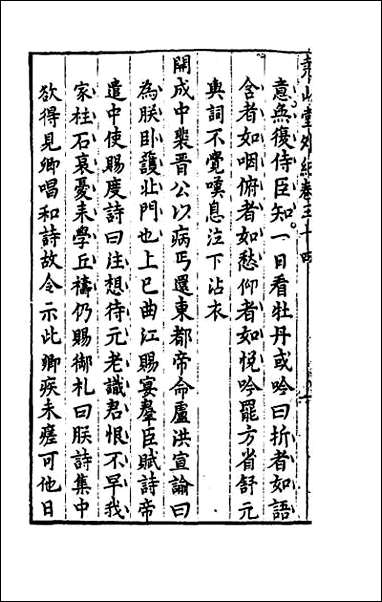 堯山堂外紀卷三十四
意無復侍臣知一日看牡丹或吟曰折者如語
含者如咽俯者如愁仰者如悅吟罷方省舒元
輿詞不覺嘆息泣下沾衣
開成中裴晉公以病丐還東都帝命盧洪宣諭曰
為朕臥護北門也上巳曲江賜宴羣臣賦詩帝
遣中使賜度詩曰注想待元老識君恨不早我
家柱石衰憂來學丘禱仍賜御札曰朕詩集中
欲得見卿唱和詩故令示此卿疾未瘥可他日